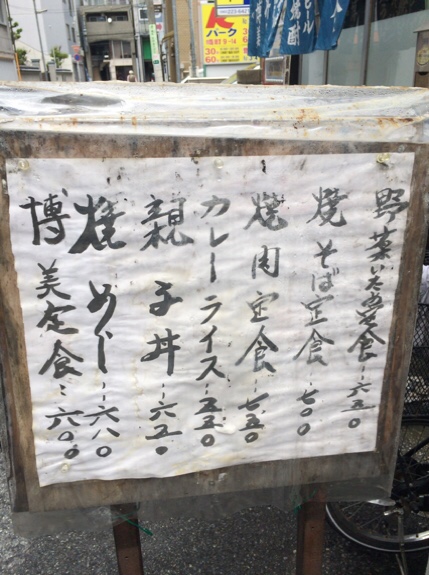 野菜いため定食…六五〇
焼そば定食…七〇〇
焼肉定食…七五〇
カレーライス…五五〇
親子丼…六五〇
焼めし…六八〇
博美定食…六〇〇
パーク